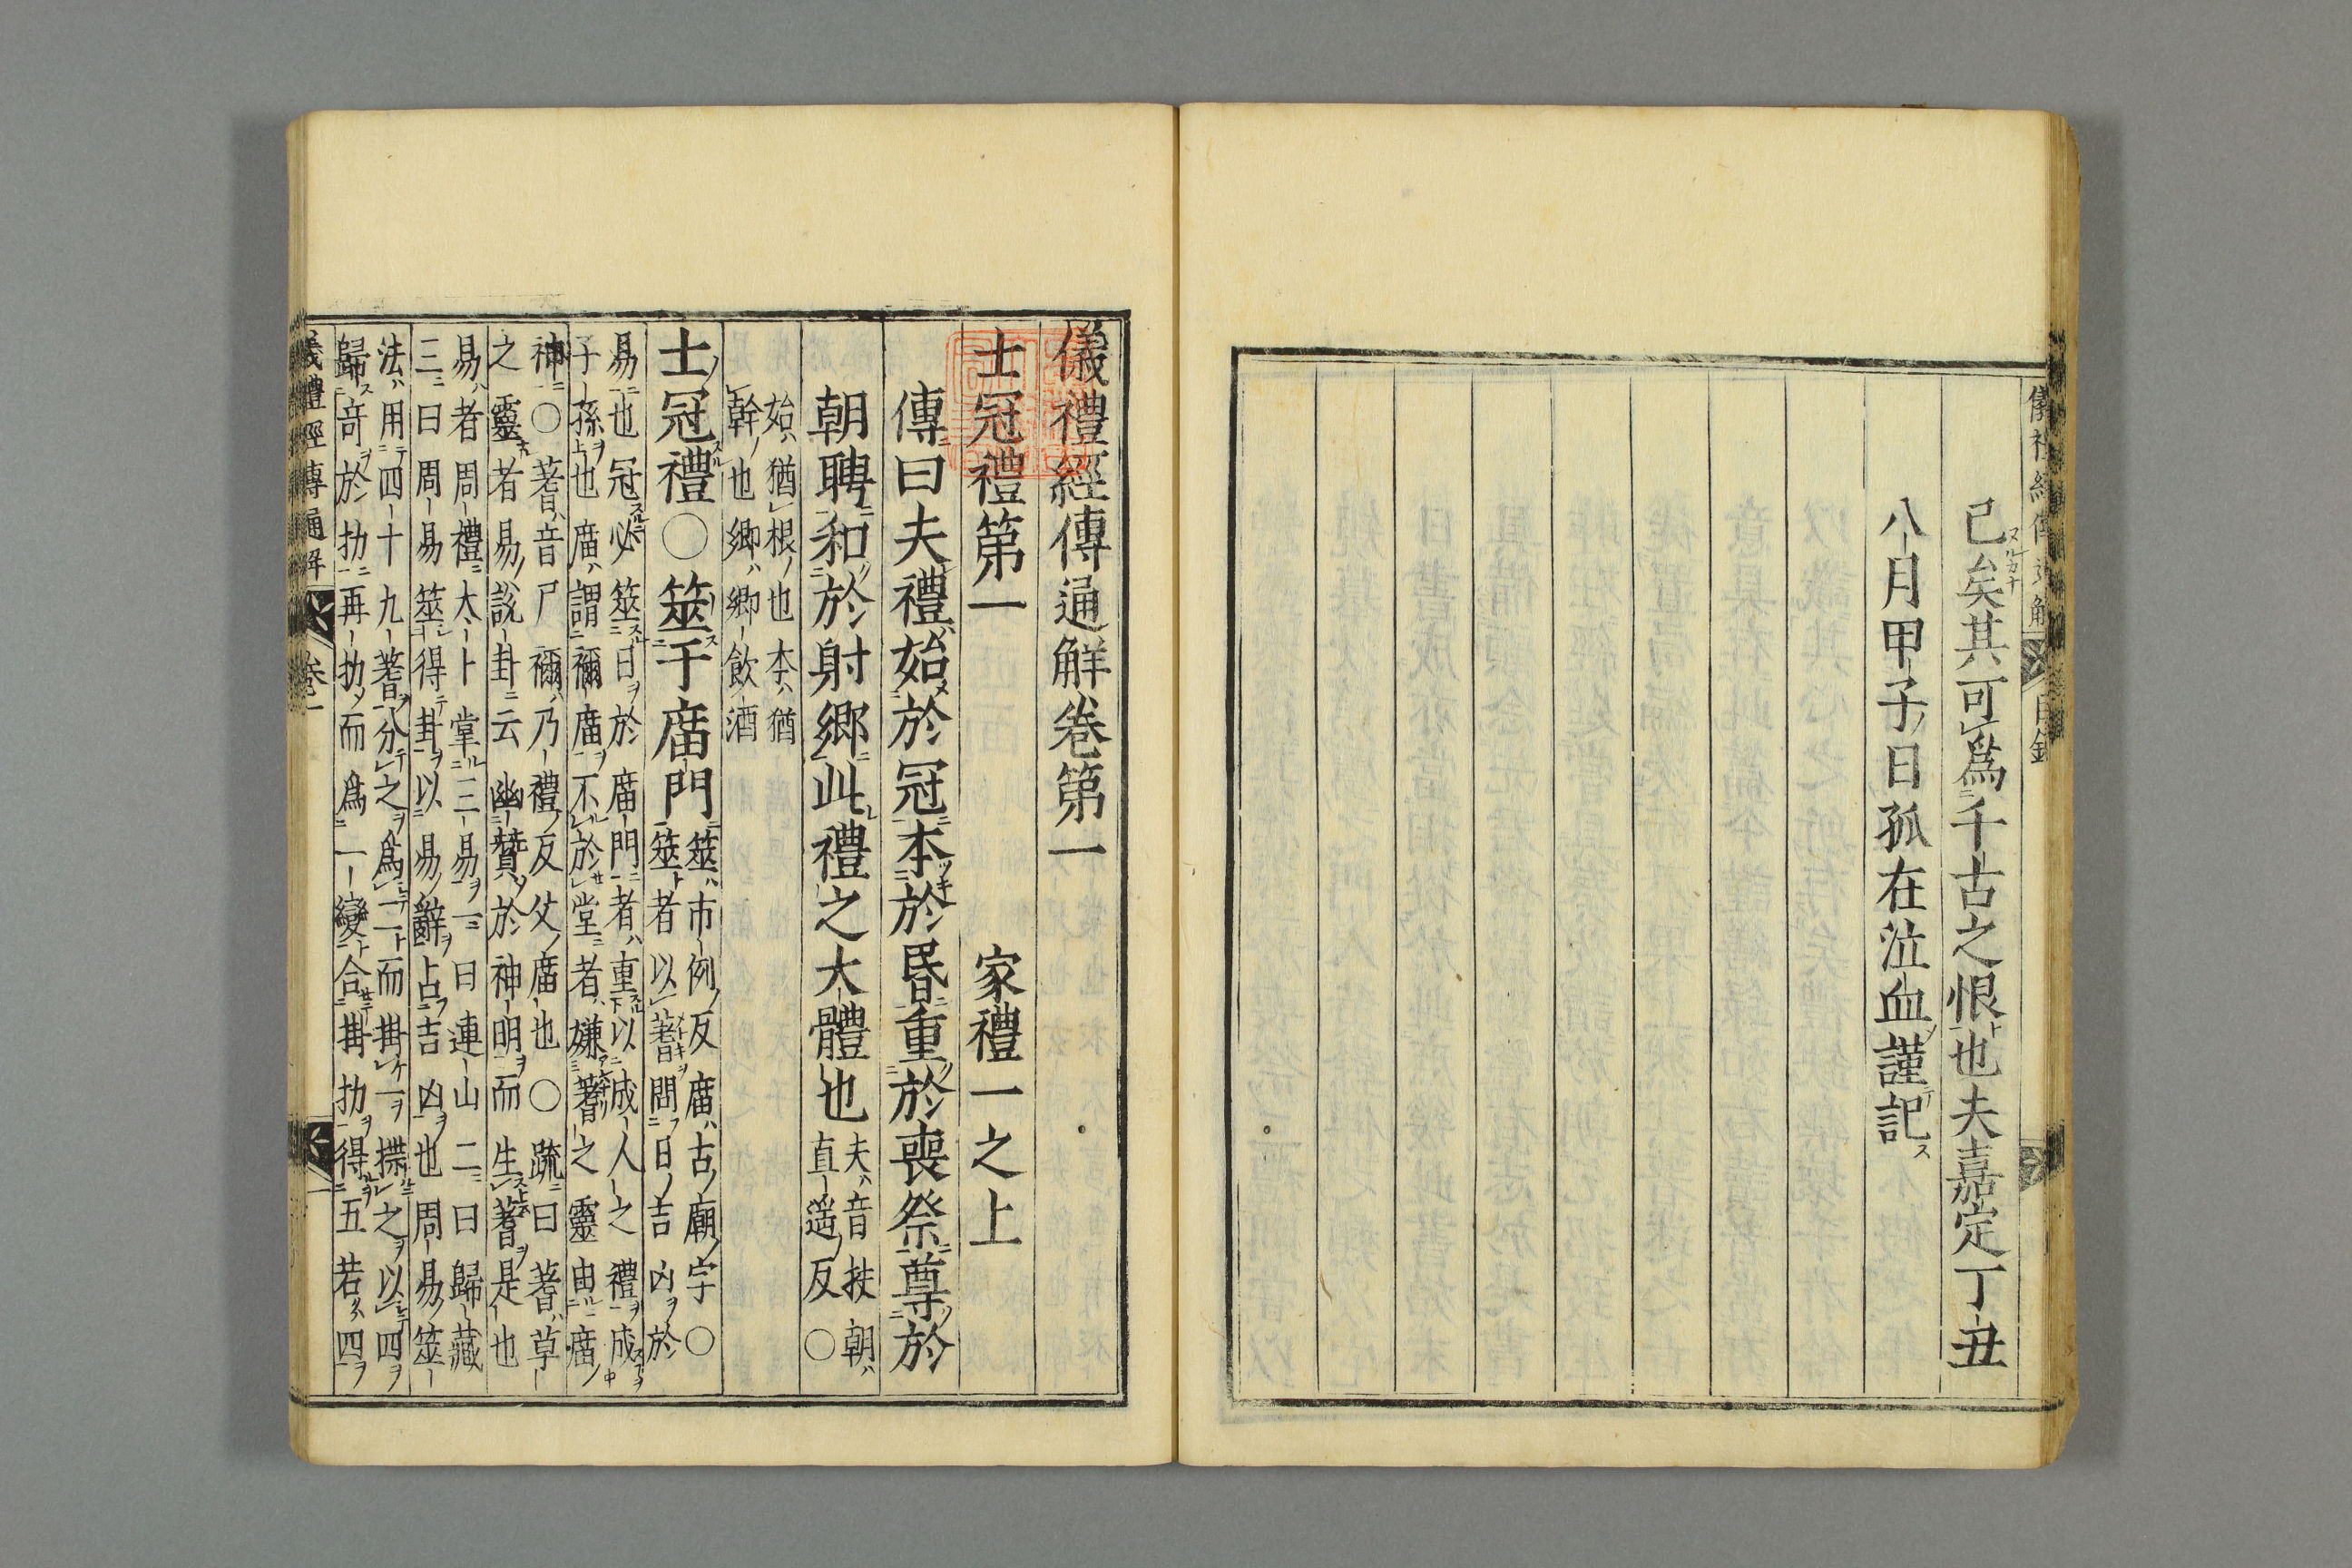 已矣其可爲千古之恨也夫嘉定丁丑
八月甲子日孤在泣血謹記
儀禮經傳通解卷第一
士冠禮第一　家禮一之上
傳曰夫禮始於冠本於昬重於喪祭尊於
朝聘和於射鄉此禮之大體也
夫音扶朝
直遥反〇
始猶根也本猶
幹也鄉鄉飲酒
士冠禮〇筮于庿門
筮市例反庿古廟字〇
筮者以蓍問日吉凶於
易也冠必筮日於庿門者重以成人之禮成
子孫也庿謂禰庿不於堂者嫌蓍之靈由庿
神〇蓍音尸禰乃禮反父庿也〇疏曰蓍草
之靈者易說卦云幽贊於神明而生蓍是也
易者周禮大卜掌三易一曰連山二曰歸藏
三曰周易筮得卦以易辭占吉凶也周易筮
法用四十九蓍分之爲二而掛一揲之以四
歸奇於扐再扐而爲一變合掛扐得五若四
儀禮經傳通解　卷一　一